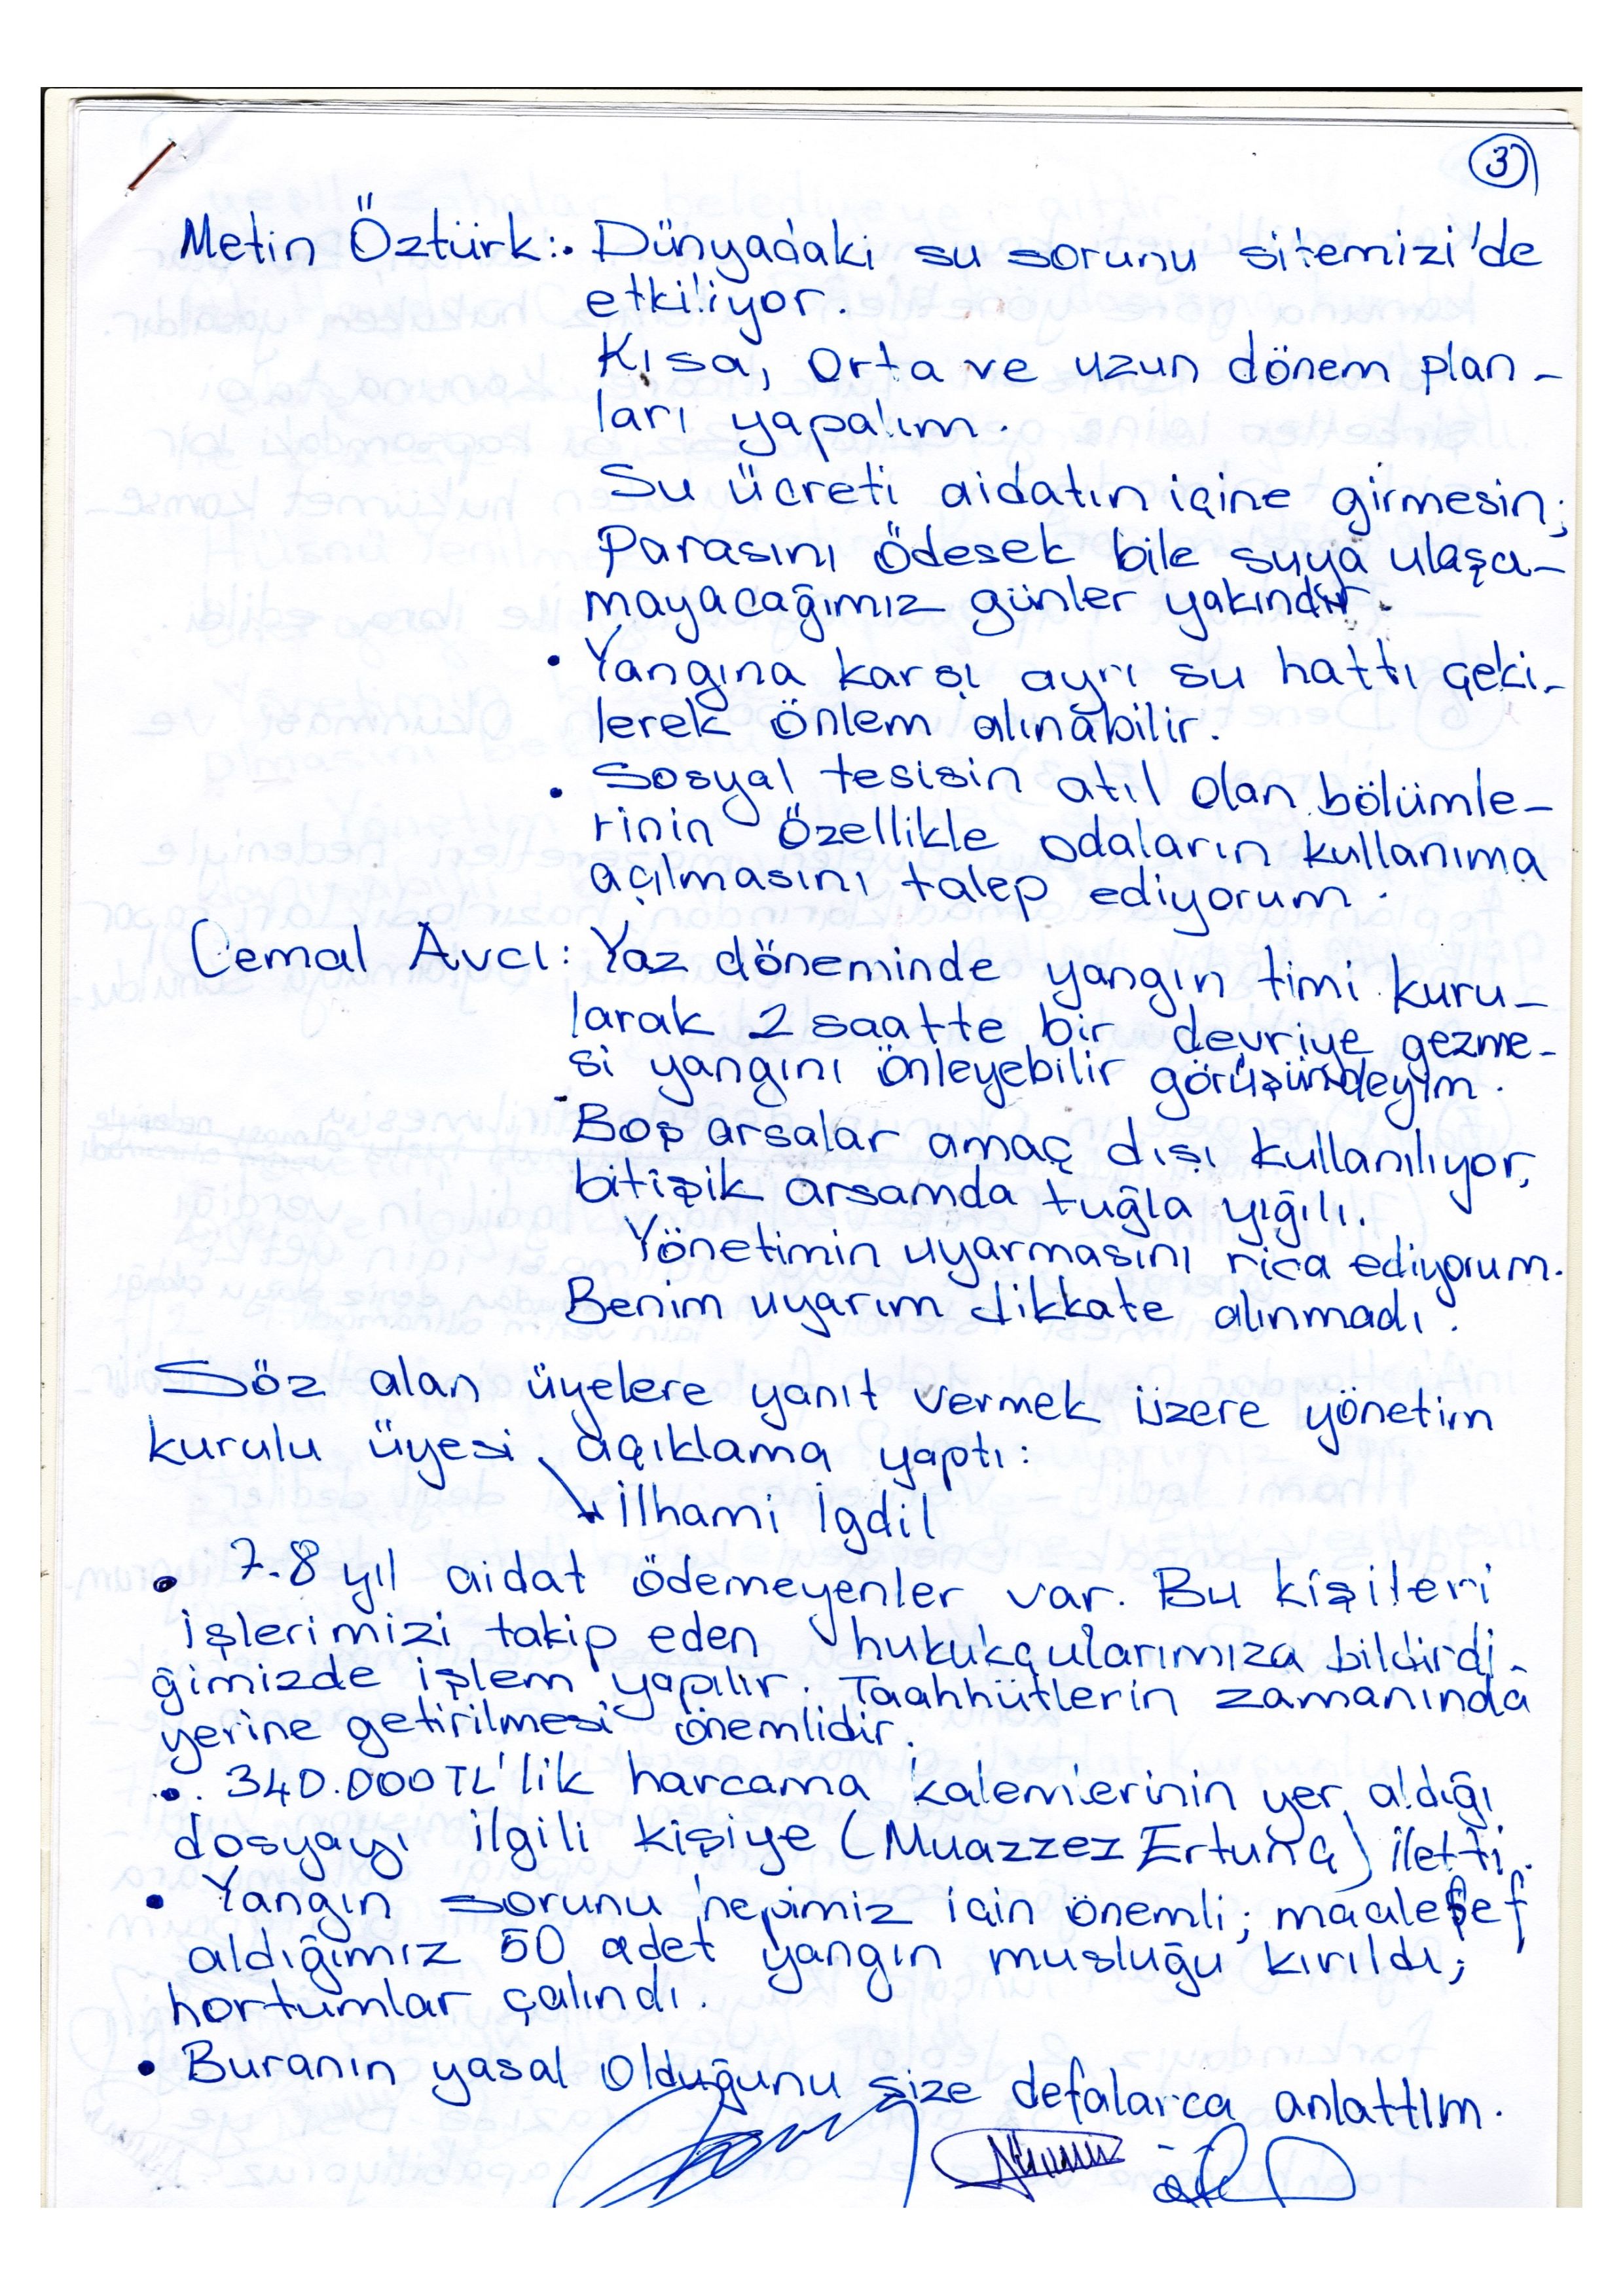 3
Metin Öztürk:. Dünyadaki su sorunu sitemizi'de
etkiliyor.
Kısa, orta ve uzun dönem plan-
ları yapalım.
Su ücreti aidatın içine girmesin;
Parasını ödesek bile suya ulaşa-
mayacağımız günler yakındır.
• Yangına karşı ayrı su hattı çeki-
lerek önlem alınabilir.
• Sosyal tesisin atıl olan bölümle-
rinin özellikle odaların kullanıma
açılmasını talep ediyorum.
Cemal Avcı: Yaz döneminde yangın timi kuru-
larak 2 saatte bir devriye gezme-
si yangını önleyebilir görüşündeyim.
- Boş arsalar amaç dışı kullanılıyor,
bitişik arsamda tuğla yığılı.
Yönetimin uyarmasını rica ediyorum.
Benim uyarım dikkate alınmadı.
Söz alan üyelere yanıt vermek üzere yönetim
kurulu üyesi açıklama yaptı:
İlhami İgdil
• 7-8 yıl aidat ödemeyenler var. Bu kişileri
işlerimizi takip eden hukukçularımıza bildirdi-
ğimizde işlem yapılır. Taahhütlerin zamanında
yerine getirilmesi önemlidir.
• 340.000 TL'lik harcama kalemlerinin yer aldığı
dosyayı ilgili kişiye (Muazzez Ertuna) iletti.
• Yangın sorunu hepimiz için önemli; maalesef
aldığımız 50 adet yangın musluğu kırıldı,
hortumlar çalındı.
• Buranın yasal olduğunu size defalarca anlattım.